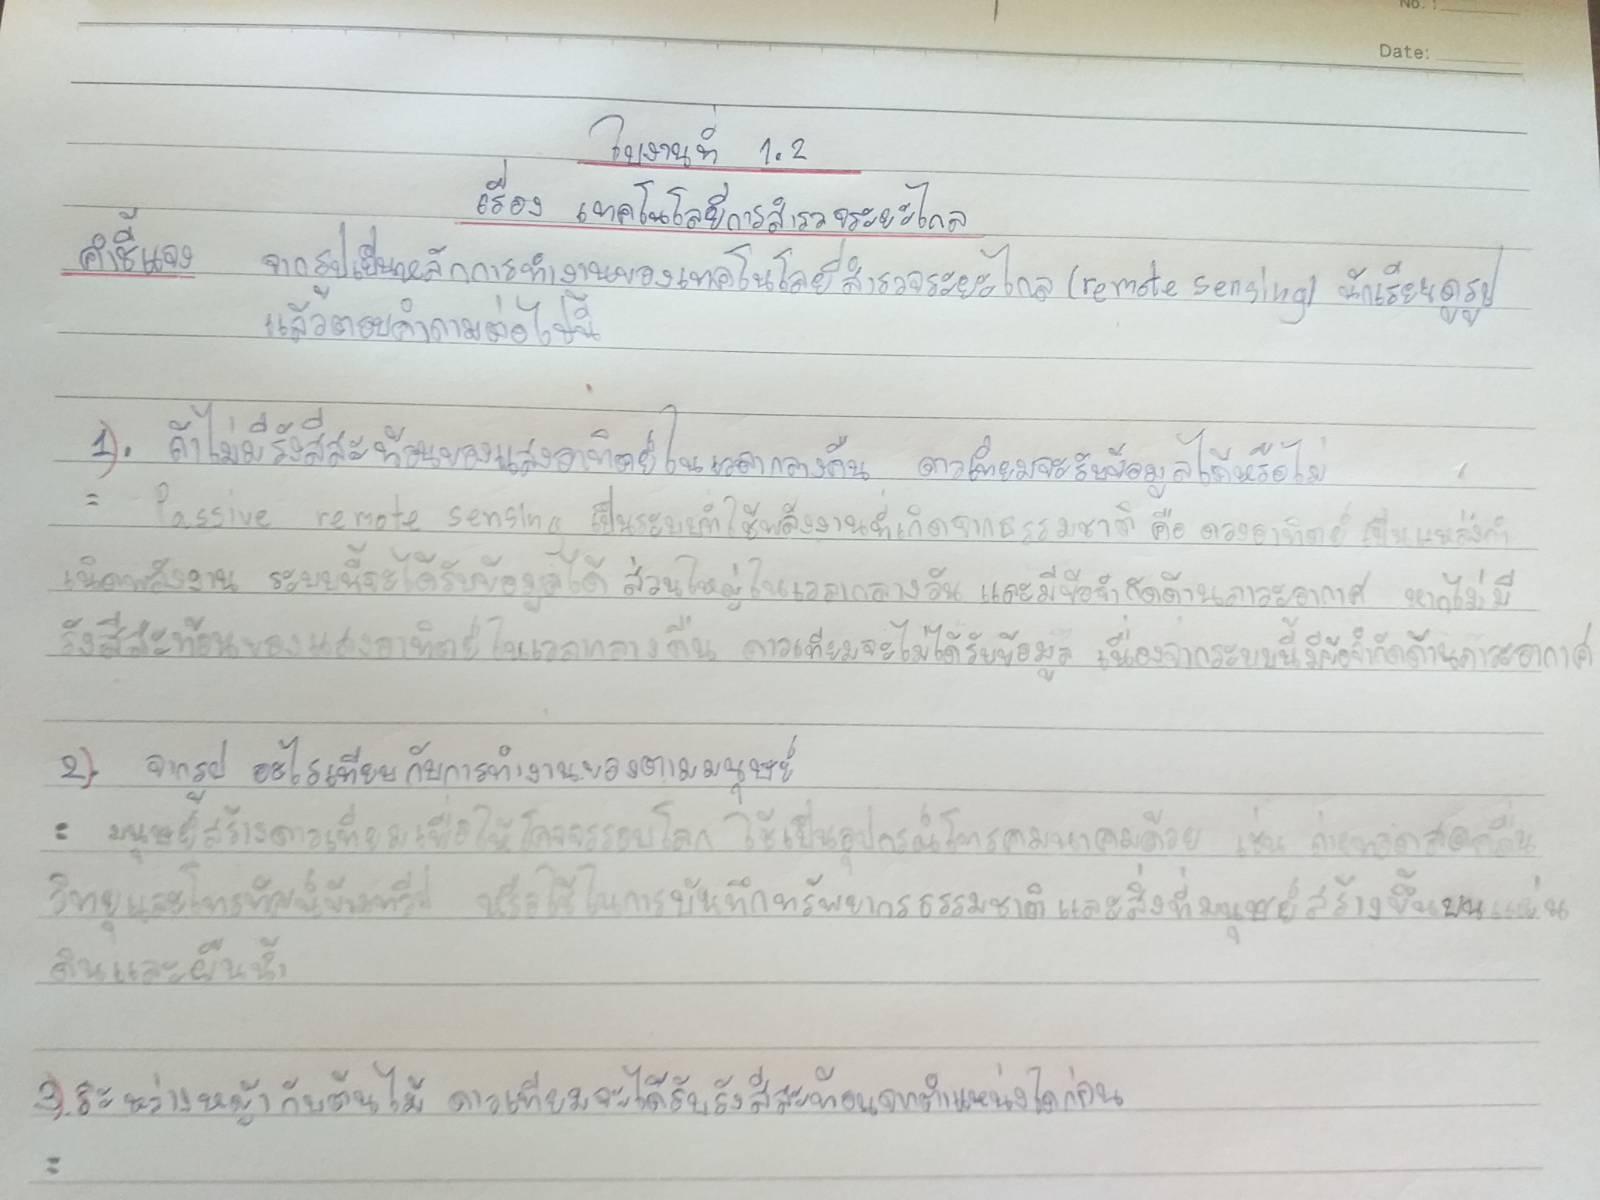 No. :
Date:
ใบงานที่ 1.2
เรื่อง เทคโนโลยีการสำรวจระยะไกล
คำชี้แจง จากรูปเป็นหลักการทำงานของเทคโนโลยีสำรวจระยะไกล (remote sensing) นักเรียนดูรูป
แล้วตอบคำถามต่อไปนี้
1). ถ้าไม่มีรังสีสะท้อนของแสงอาทิตย์ในเวลากลางคืน ดาวเทียมจะรับข้อมูลได้หรือไม่
= Passive remote sensing เป็นระบบที่ใช้พลังงานที่เกิดจากธรรมชาติ คือ ดวงอาทิตย์ เป็นแหล่งกำ
เนิดพลังงาน ระบบนี้จะได้รับข้อมูลได้ ส่วนใหญ่ในเวลากลางวัน และมีข้อจำกัดด้านภาวะอากาศ หากไม่มี
รังสีสะท้อนของแสงอาทิตย์ในเวลากลางคืน ดาวเทียมจะไม่ได้รับข้อมูล เนื่องจากระบบนี้มีข้อจำกัดด้านภาวะอากาศ
2). จากรูป อะไรเทียบกับการทำงานของตามมนุษย์
= มนุษย์สร้างดาวเทียมเพื่อให้โคจรรอบโลก ใช้เป็นอุปกรณ์โทรคมนาคมด้วย เช่น ถ่ายทอดสดคลื่น
วิทยุและโทรทัศน์ข้ามทวีป หรือใช้ในการบันทึกทรัพยากรธรรมชาติและสิ่งที่มนุษย์สร้างขึ้นบนแผ่น
ดินและผืนน้ำ
3). ระหว่างหญ้ากับต้นไม้ ดาวเทียมจะได้รับรังสีสะท้อนจากตำแหน่งใดก่อน
=